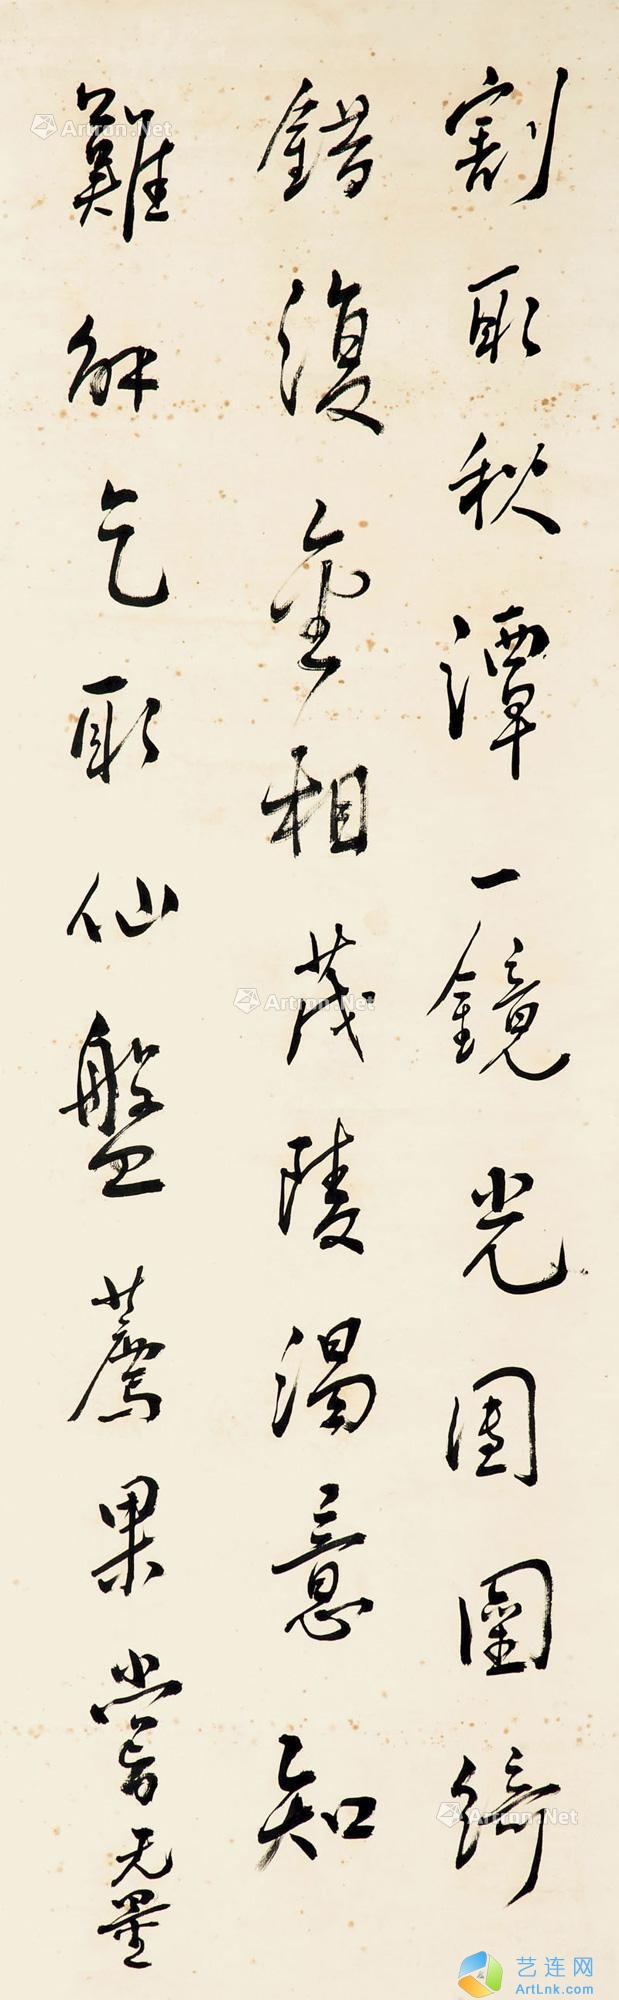 割取秋潭一鏡光團圞綺
錯復金相茂陵渴意知
難解乞取仙盤薦果嘗无量
Artron.Net
Artron.Net
Artron.Net
艺连网
ArtLnk.com